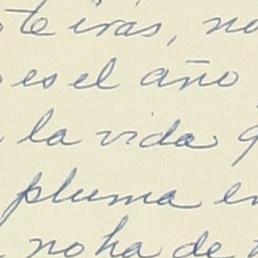 te irás, no
es el año
la vida
pluma en
no ha de